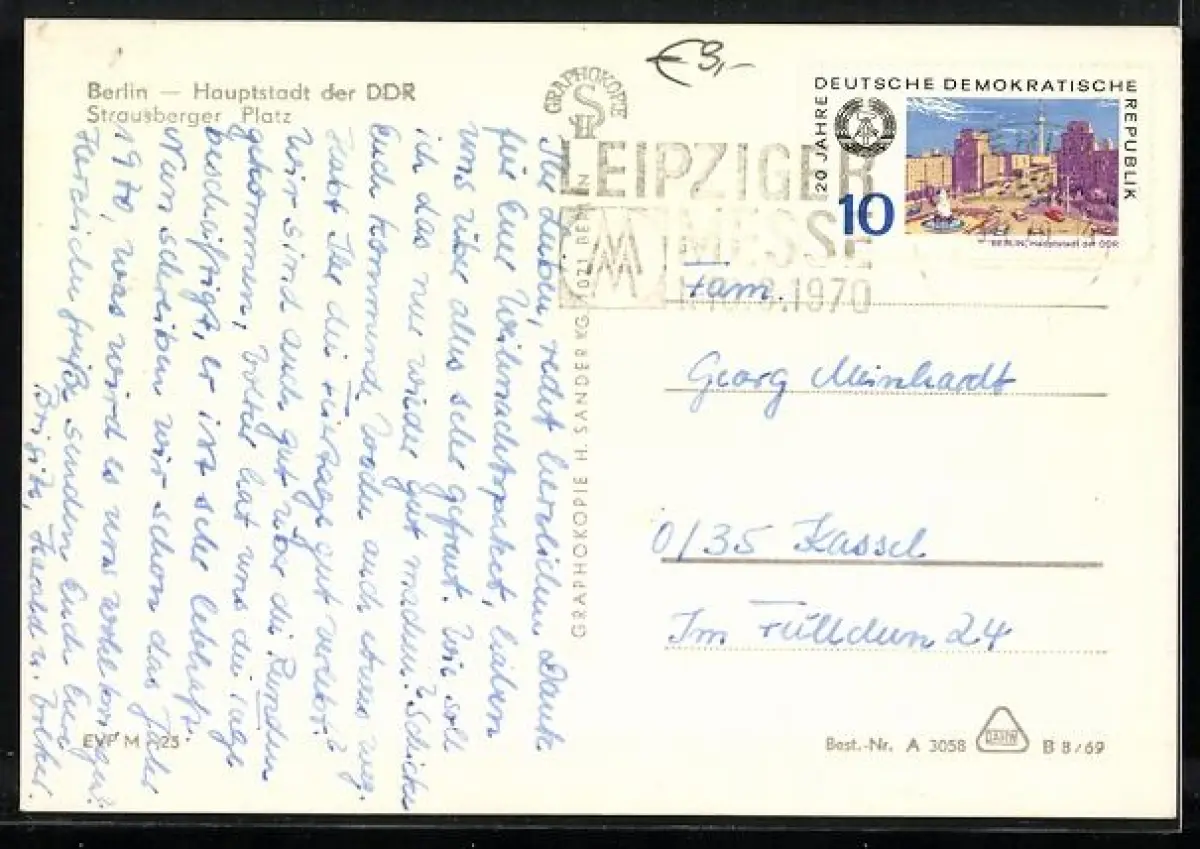 € 9,-
Berlin — Hauptstadt der DDR
Strausberger Platz
DEUTSCHE DEMOKRATISCHE
REPUBLIK
20 JAHRE
10
BERLIN, Hauptstadt der DDR
LEIPZIGER
MESSE
1970
MM
GRAPHOKOPIE
H S
GRAPHOKOPIE H. SANDER KG, 1021 BERLIN
Ihr Lieben, recht herzlichen Dank
für Eure Weihnachtspaket, haben
uns über alles sehr gefreut. Wie soll
ich das nur wieder gut machen? Schicke
Euch kommende Woche auch etwas weg.
Habt Ihr die Feiertage gut verlebt?
Wir sind auch gut über die Runden
gekommen, Volker hat uns die Tage
beschäftigt, er ist sehr lebhaft.
Nun schreiben wir schon das Jahr
1970, was wird es uns wohl bringen?
Herzliche Grüße senden Euch Eure
Brigitte, Harald u. Volker.
Fam.
Georg Meinhardt
0/35 Kassel
Im Fülldum 24
EVP M 0,25
Best.-Nr. A 3058
B 8/69